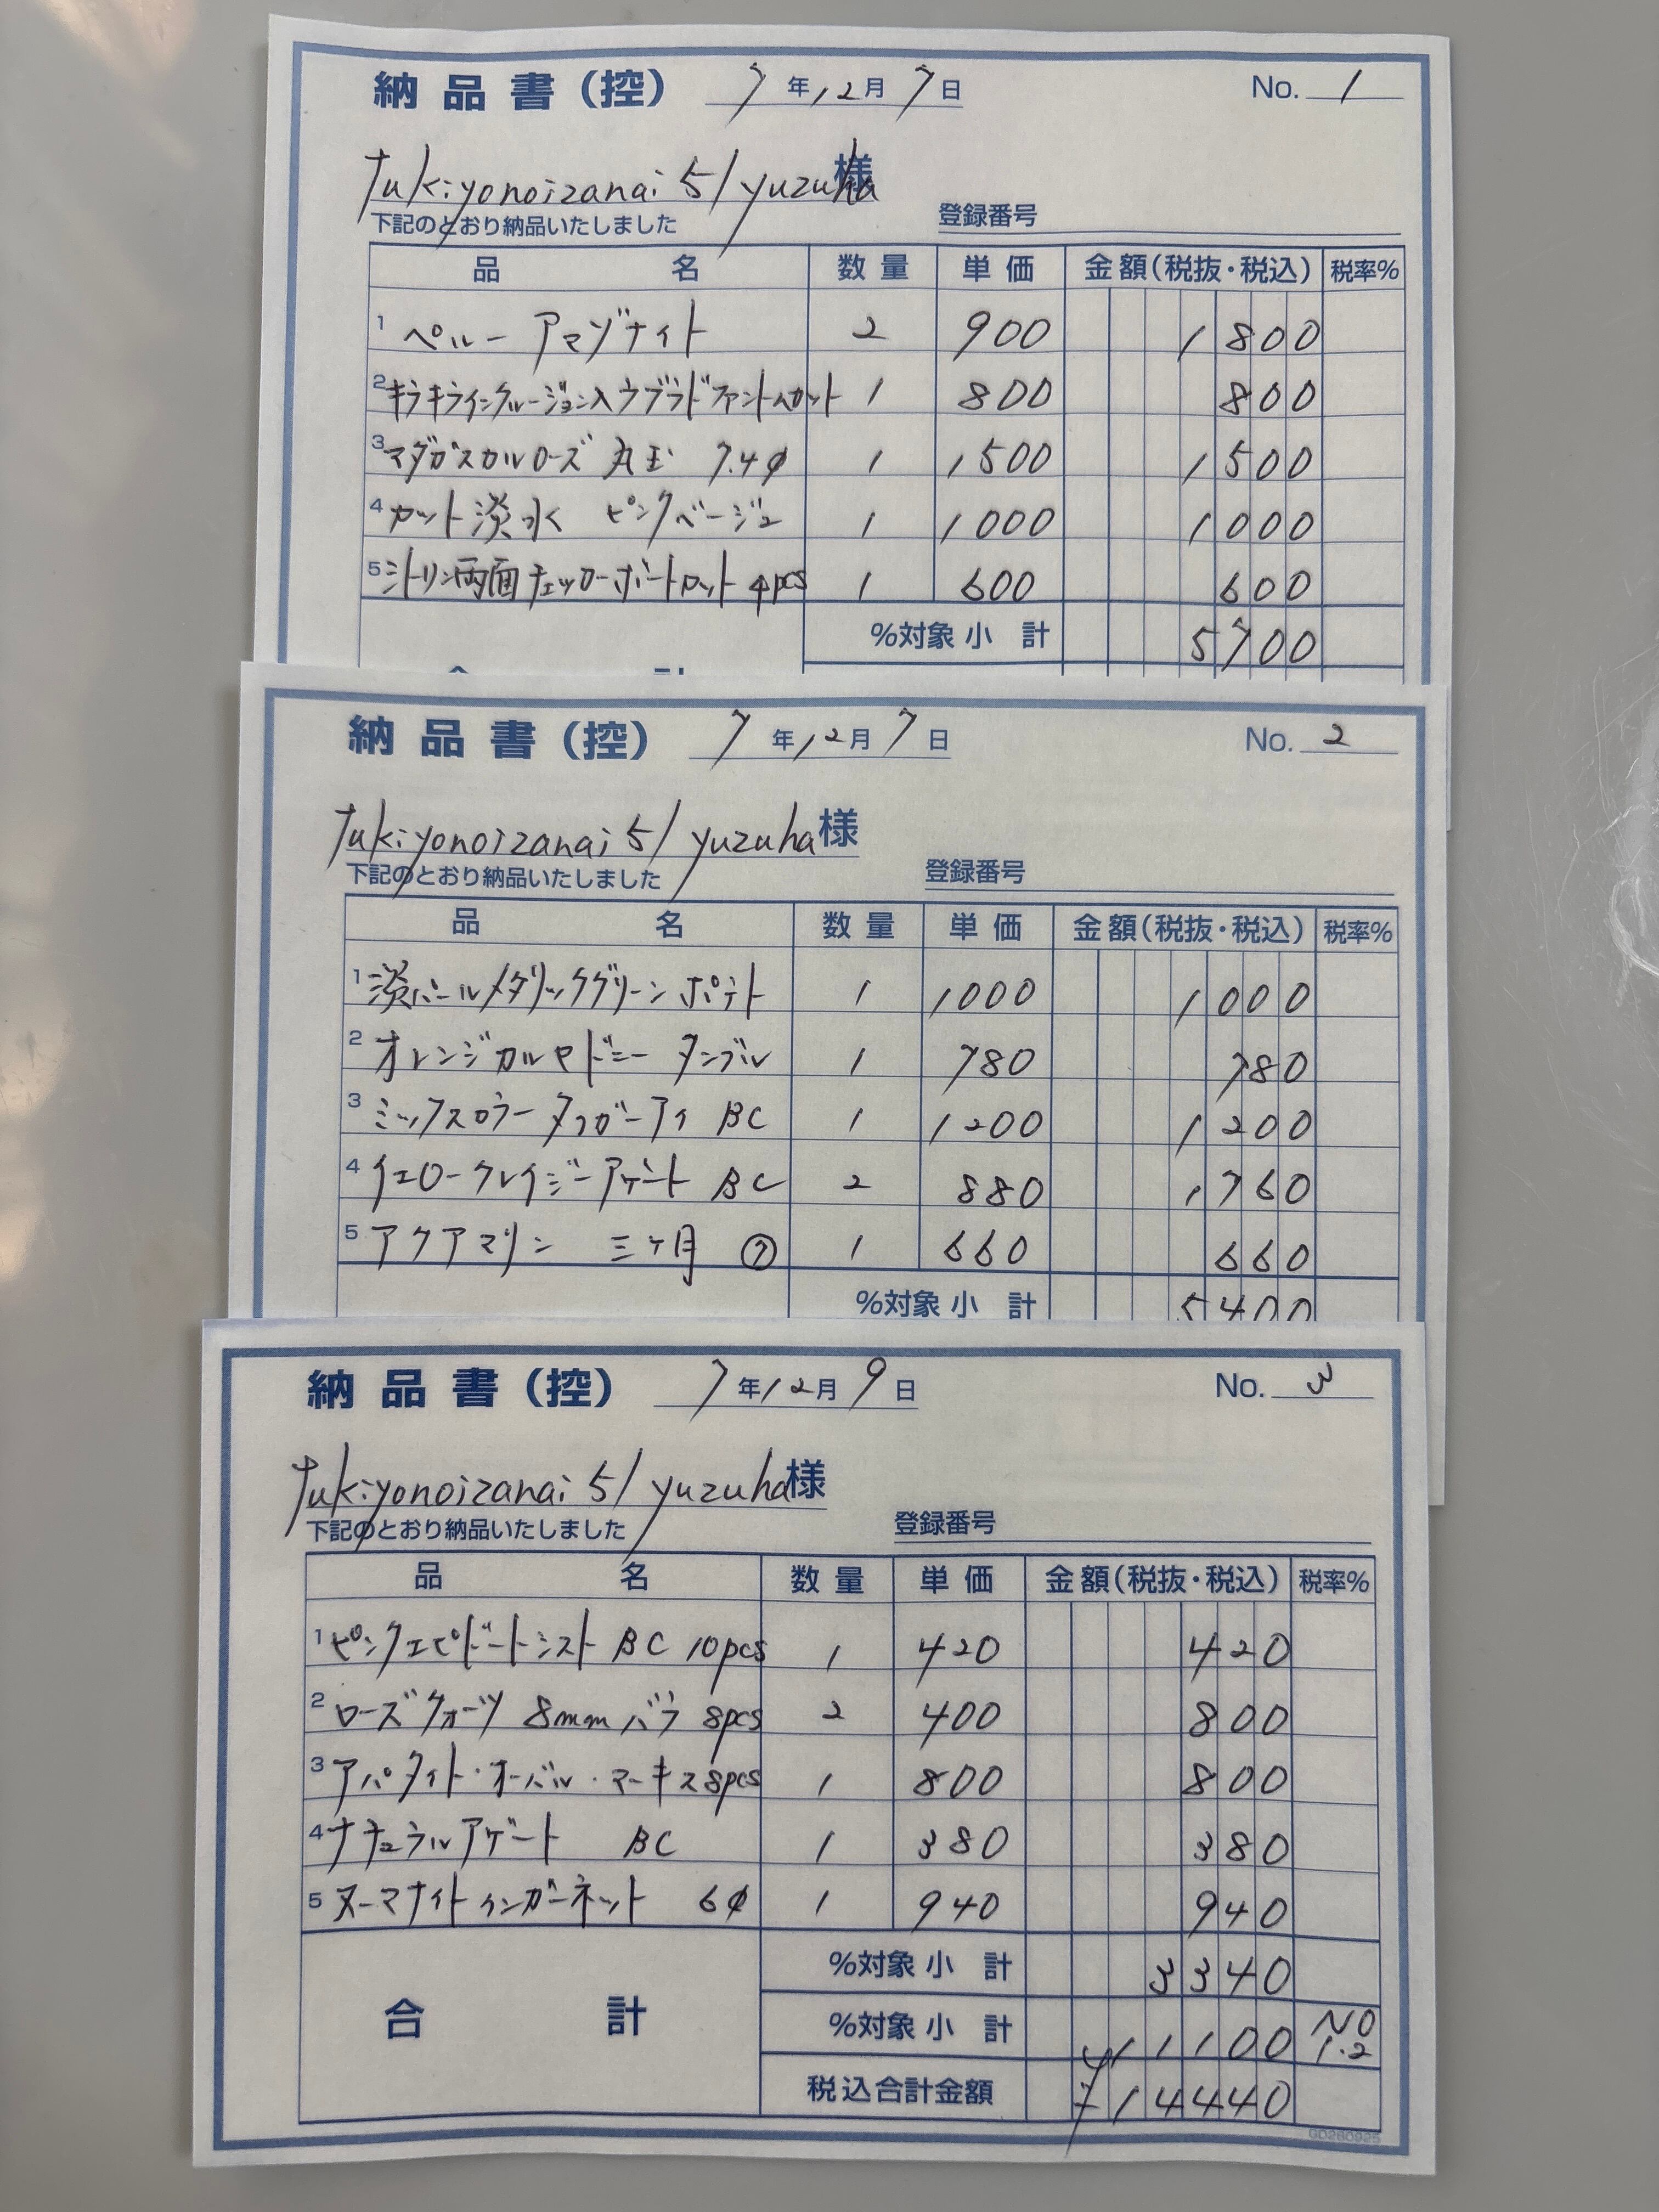 納品書(控) 7年12月7日 No. 1
tukiyonoizanai5/yuzuha様
下記のとおり納品いたしました 登録番号
品名 数量 単価 金額(税抜・税込) 税率%
1 ペルー アマゾナイト 2 900 1800
2 キラキラインクルージョン入ウブラドファントムカット 1 800 800
3 マダガスカルローズ 丸玉 7.4φ 1 1500 1500
4 カット淡水 ピンクベージュ 1 1000 1000
5 シトリン両面チェッカーボードカット 4pcs 1 600 600
%対象 小計 5700
納品書(控) 7年12月7日 No. 2
tukiyonoizanai5/yuzuha様
下記のとおり納品いたしました 登録番号
品名 数量 単価 金額(税抜・税込) 税率%
1 淡パールメタリックグリーン ポテト 1 1000 1000
2 オレンジカルセドニー タンブル 1 780 780
3 ミックスカラー タイガーアイ BC 1 1200 1200
4 イエロークレイジーアゲート BC 2 880 1760
5 アクアマリン 三ケ月 ⑦ 1 660 660
%対象 小計 5400
納品書(控) 7年12月9日 No. 3
tukiyonoizanai5/yuzuha様
下記のとおり納品いたしました 登録番号
品名 数量 単価 金額(税抜・税込) 税率%
1 ピンクエピドートシスト BC 10pcs 1 420 420
2 ローズクォーツ 8mmバラ 8pcs 2 400 800
3 アパタイト・オーバル・マーキス8pcs 1 800 800
4 ナチュラルアゲート BC 1 380 380
5 ヌーマナイトインガーネット 6φ 1 940 940
%対象 小計 3340
合計 %対象 小計 11100 NO 1.2
税込合計金額 ¥14440
GD280925